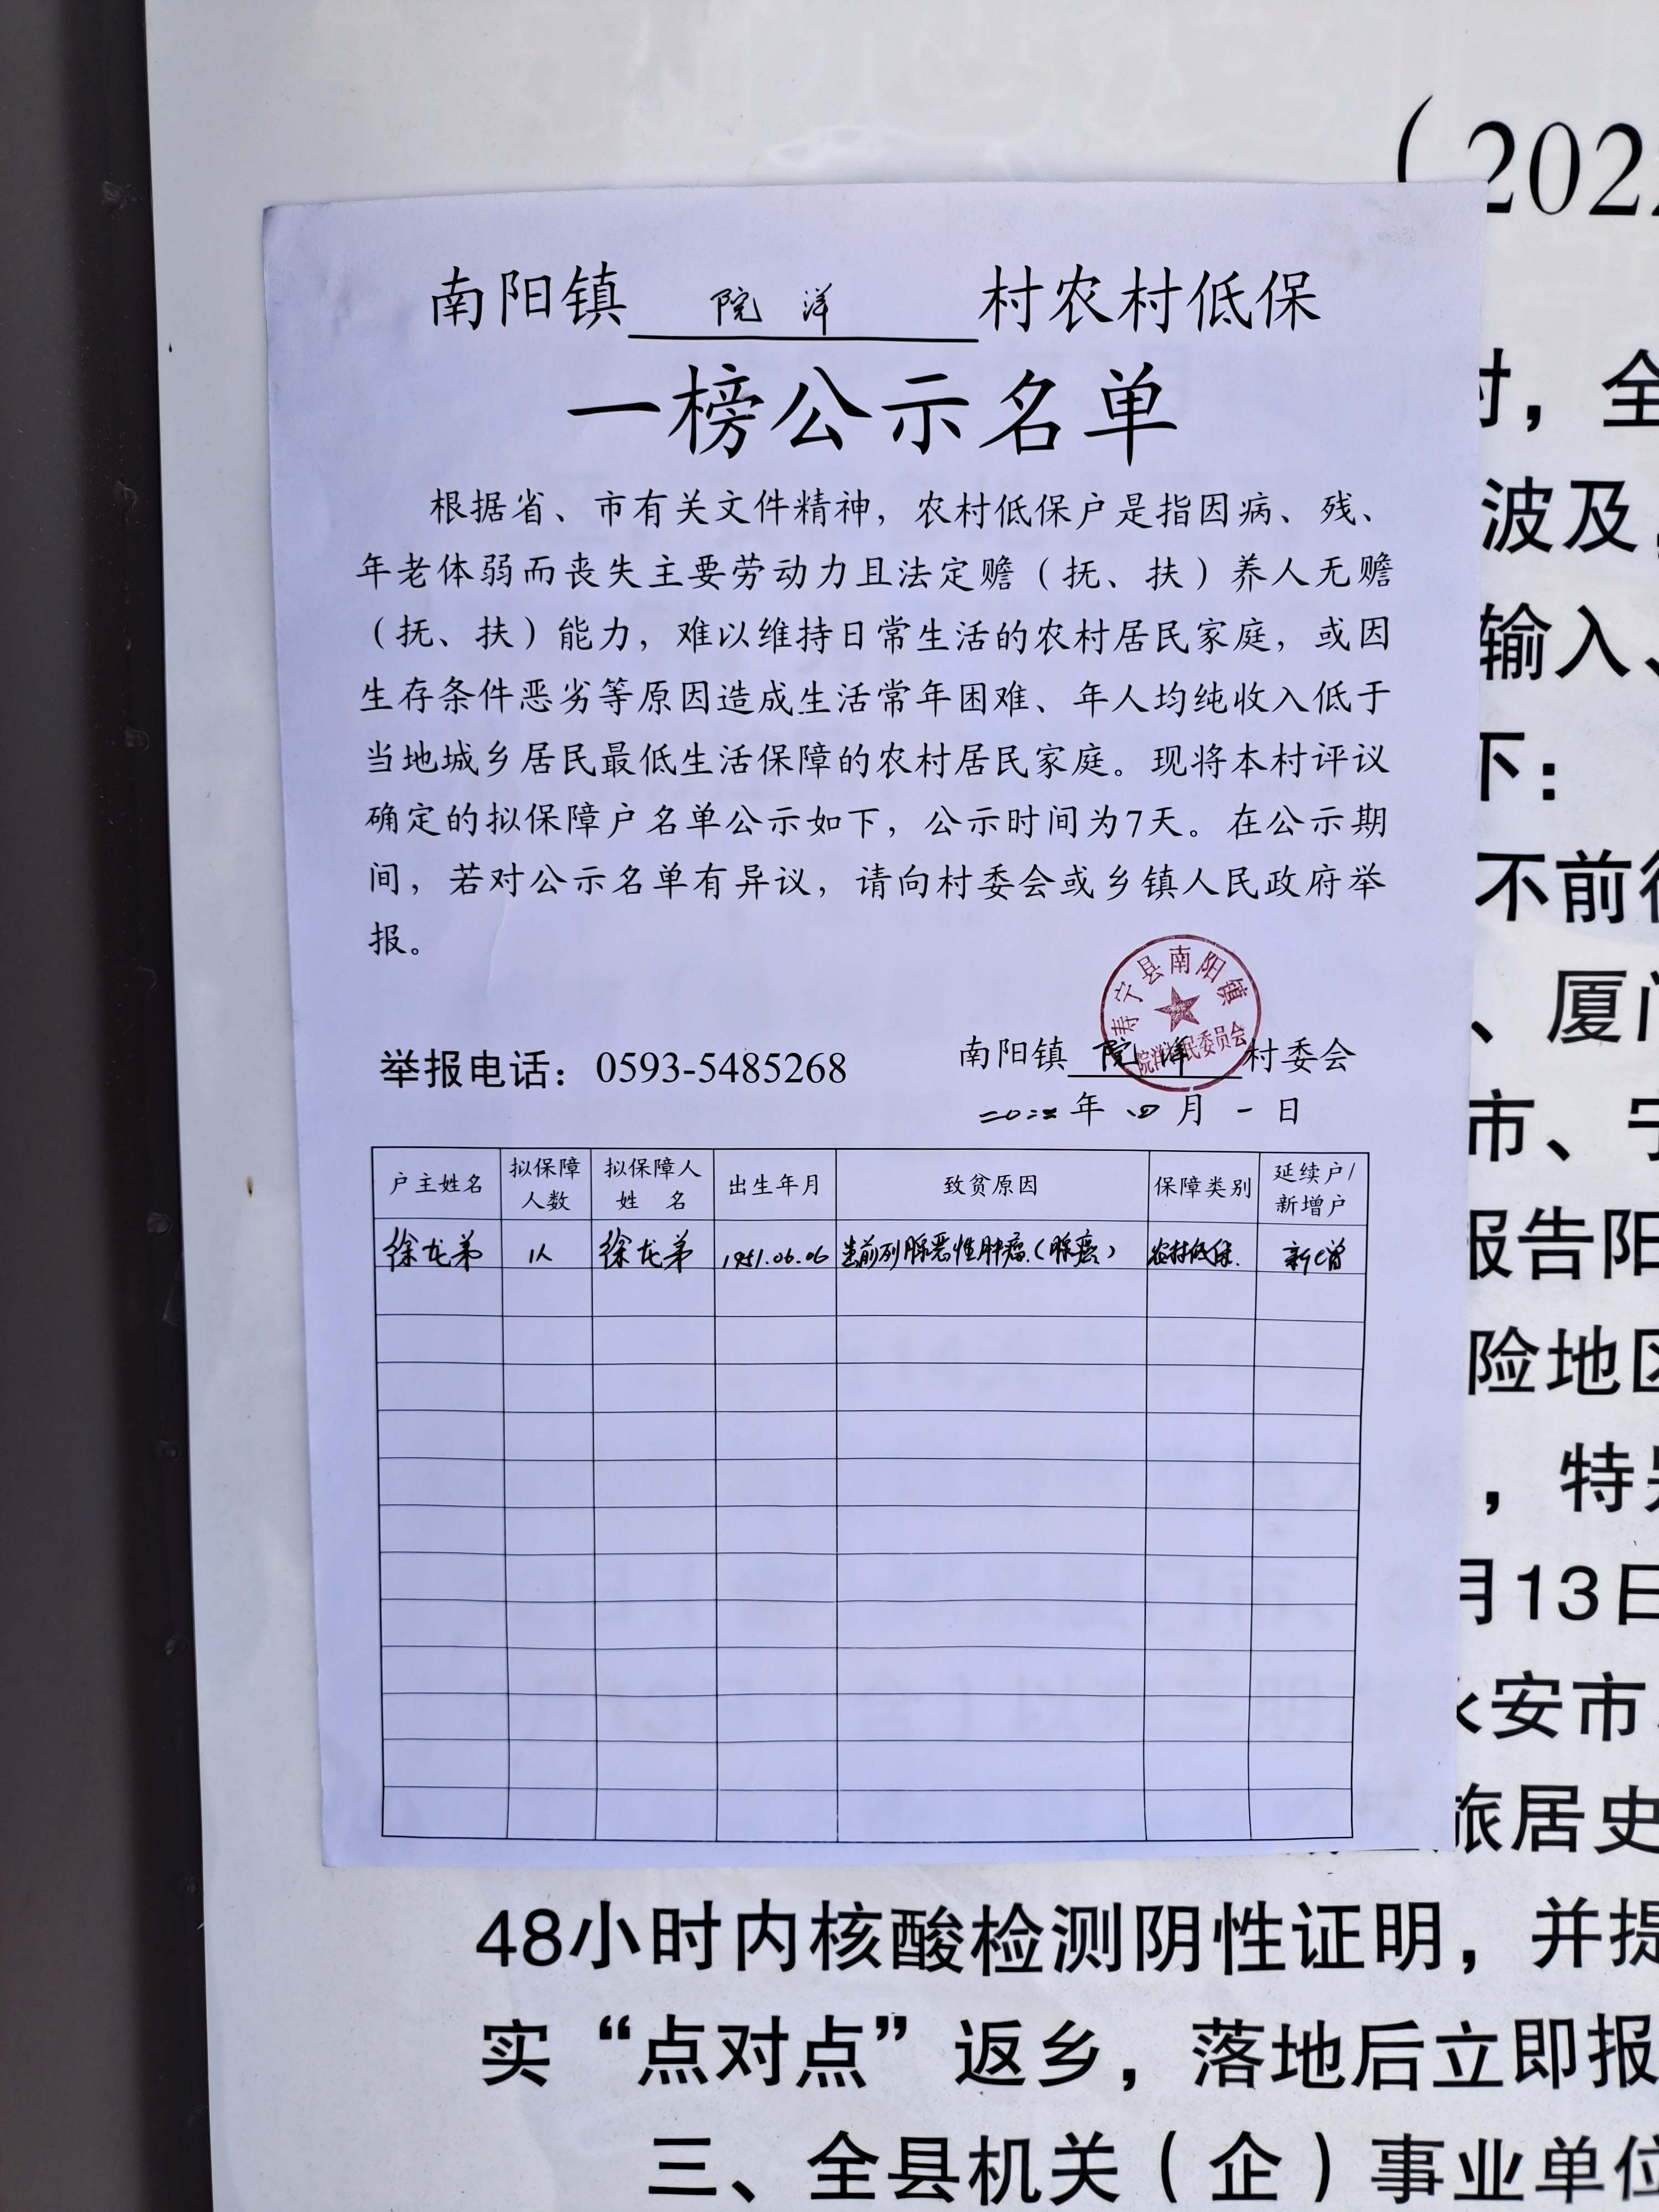 （2022
南阳镇 院洋 村农村低保
一榜公示名单
根据省、市有关文件精神，农村低保户是指因病、残、
年老体弱而丧失主要劳动力且法定赡（抚、扶）养人无赡
（抚、扶）能力，难以维持日常生活的农村居民家庭，或因
生存条件恶劣等原因造成生活常年困难、年人均纯收入低于
当地城乡居民最低生活保障的农村居民家庭。现将本村评议
确定的拟保障户名单公示如下，公示时间为7天。在公示期
间，若对公示名单有异议，请向村委会或乡镇人民政府举
报。
寿宁县南阳镇
院洋村民委员会
举报电话：0593-5485268
南阳镇 院洋 村委会
二〇二二年 四 月 一 日
户主姓名 拟保障人数 拟保障人姓名 出生年月 致贫原因 保障类别 延续户/新增户
徐龙弟 1人 徐龙弟 1951.06.06 患前列腺恶性肿瘤（腺癌） 农村低保 新增
时，全
波及，
输入、
下：
不前往
、厦门
市、宁
报告阳
险地区
，特别
月13日
永安市
旅居史
48小时内核酸检测阴性证明，并提
实“点对点”返乡，落地后立即报
三、全县机关（企）事业单位